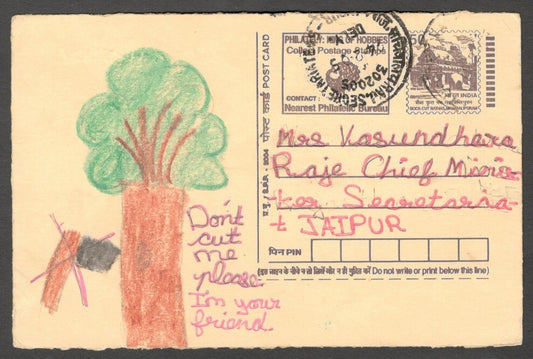 Don't
cut
me
please
I'm your
friend.
पोस्ट कार्ड POST CARD
PHILATELY: KING OF HOBBIES
Collect Postage Stamps
CONTACT :
Nearest Philatelic Bureau
302005
50
भारत INDIA
Mrs Vasundhara
Raje Chief Minis-
ter Secretaria-
t JAIPUR
पिन PIN
(इस लाइन के नीचे न तो लिखें और न ही मुद्रित करें Do not write or print below this line)